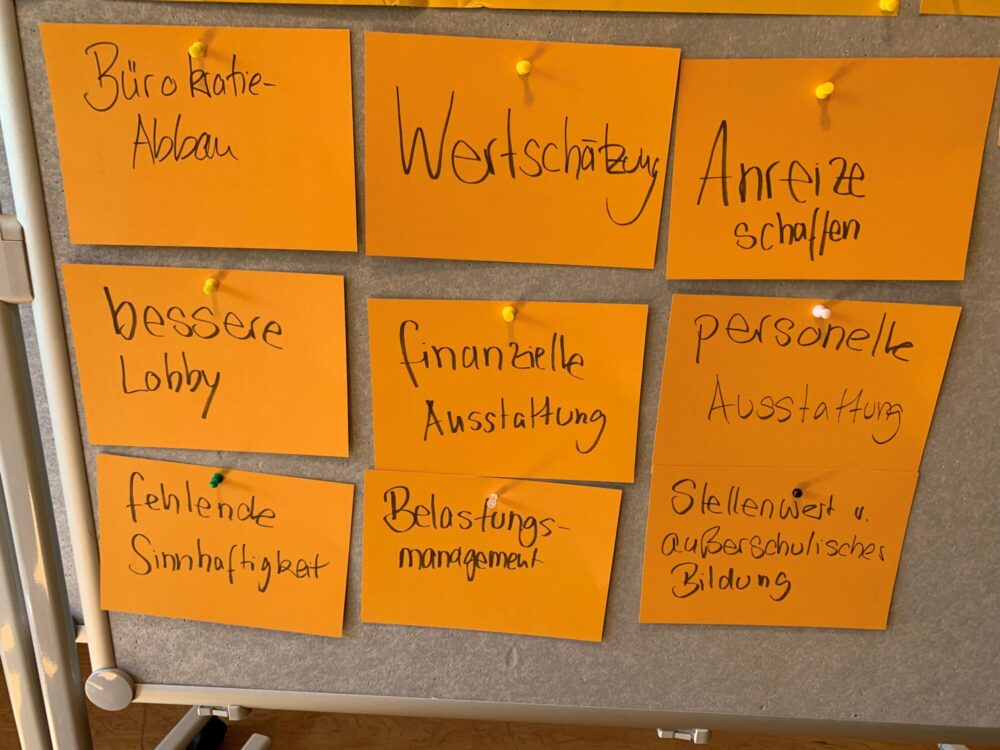 Bürokratie-
Abbau
Wertschätzung
Anreize
schaffen
bessere
Lobby
finanzielle
Ausstattung
personelle
Ausstattung
fehlende
Sinnhaftigkeit
Belastungs-
management
Stellenwert u.
außerschulischer
Bildung